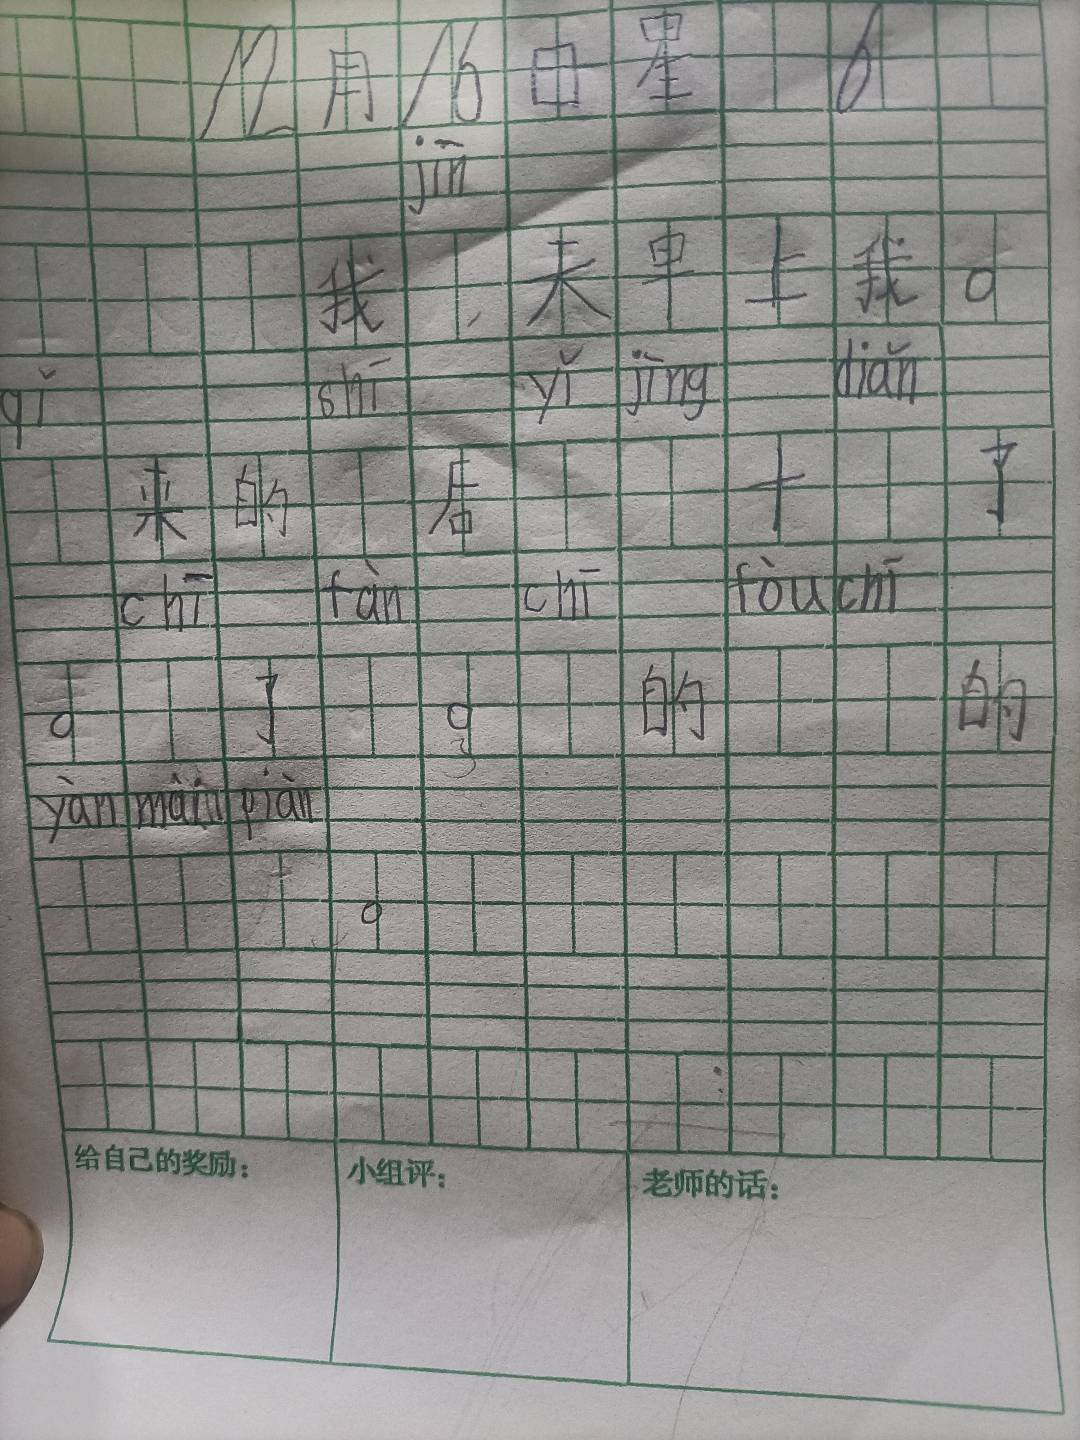 12 月 16 日 星 6
jīn
我 , 未 早 上 我 。
qǐ shī yǐ jīng diǎn
来 的 十 了
chī fàn chī fòu chī
。 了 。 的 的
yàn mân piàn
。
给自己的奖励:
小组评:
老师的话: